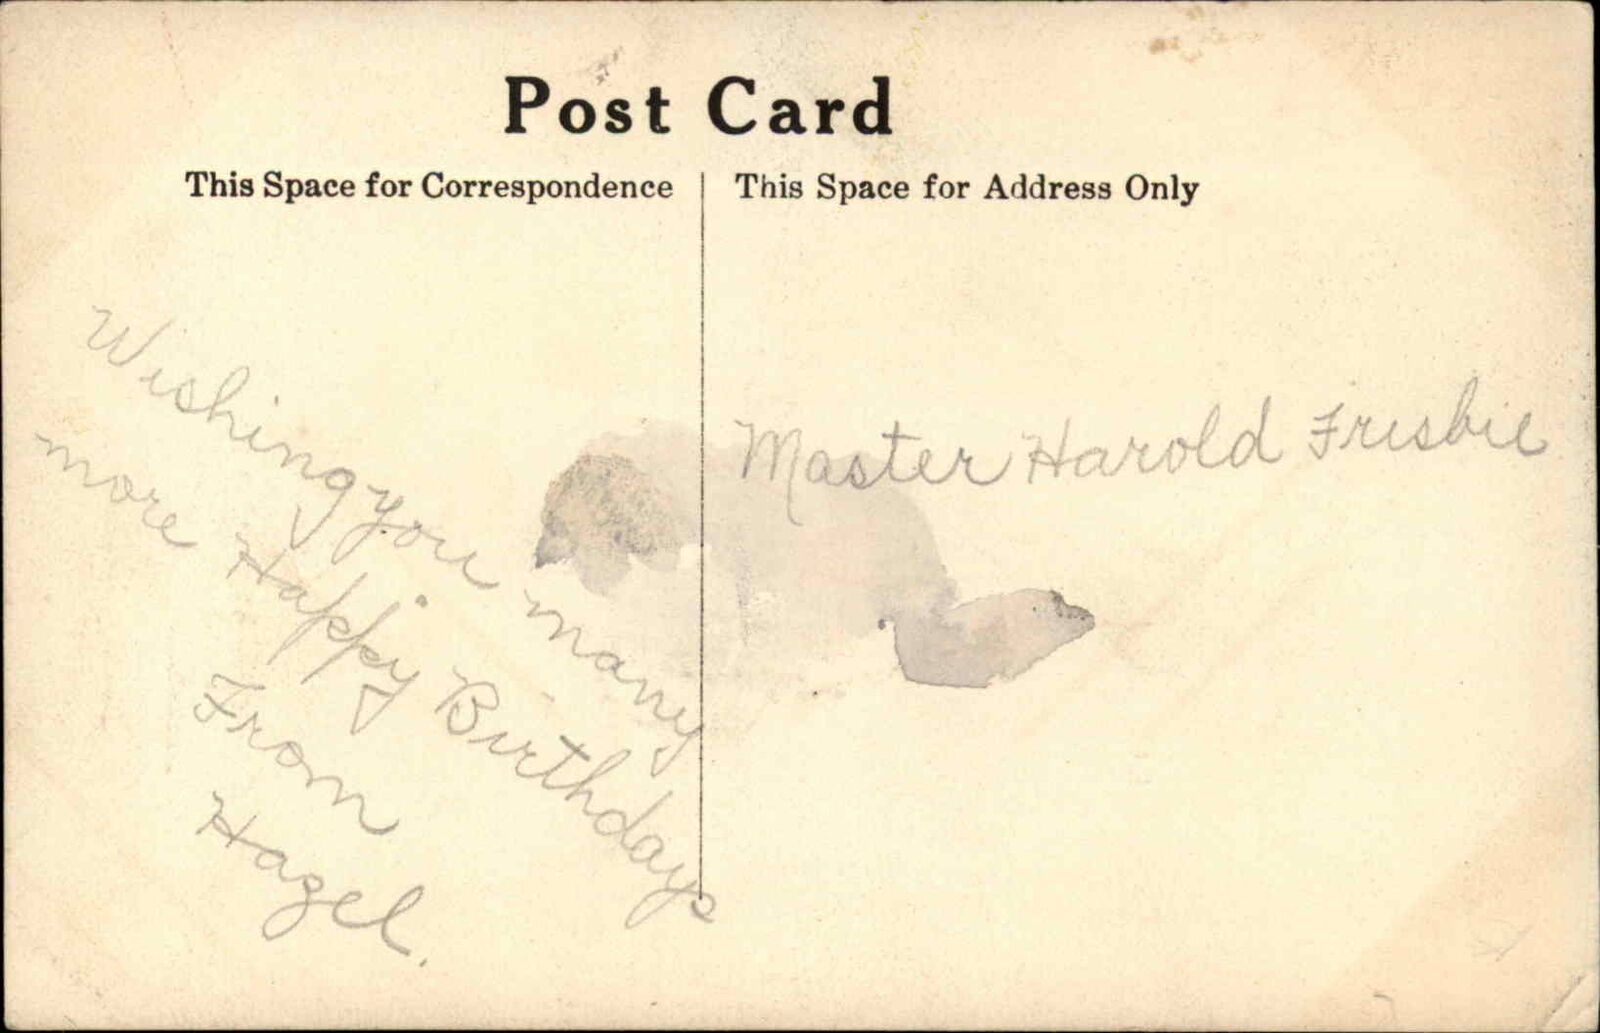 Post Card
This Space for Correspondence
This Space for Address Only
Wishing you many
more Happy Birthdays
From
Hazel.
Master Harold Frisbie